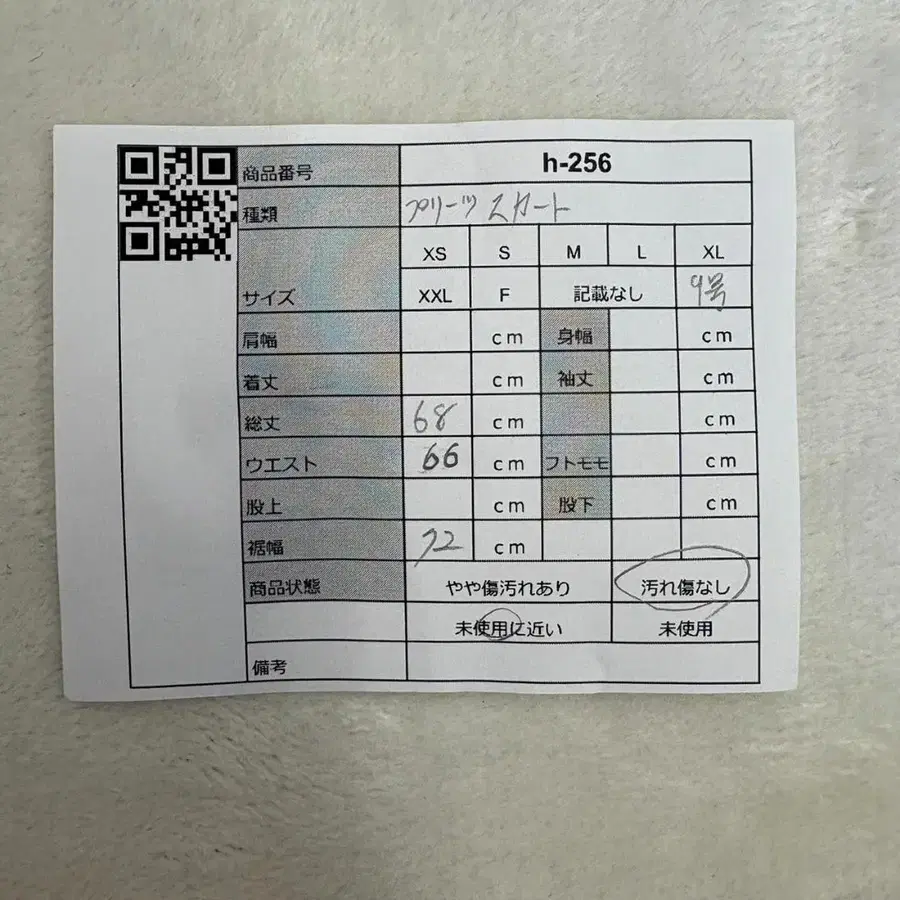 商品番号 h-256
種類 プリーツ スカート
XS S M L XL
サイズ XXL F 記載なし 9号
肩幅 cm 身幅 cm
着丈 cm 袖丈 cm
総丈 68 cm cm
ウエスト 66 cm フトモモ cm
股上 cm 股下 cm
裾幅 72 cm
商品状態 やや傷汚れあり 汚れ傷なし
未使用に近い 未使用
備考